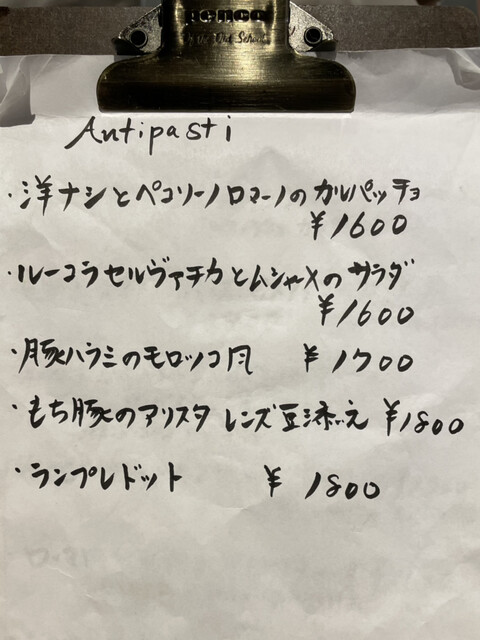 penco
Antipasti
・洋ナシとペコリーノロマーノのカルパッチョ
¥1600
・ルーコラセルヴァチカとムシャメのサラダ
¥1600
・豚ハラミのモロッコ風 ¥1700
・もち豚のアリスタ レンズ豆添え ¥1800
・ランプレドット ¥1800